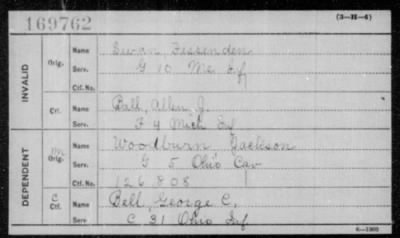 169762
(3-H-4)
INVALID
Orig.
Name Swan Fessenden
Serv. G 10 Me Inf
Ctf. No.
Ctf.
Name Ball, Allen J.
Serv. F 4 Mich Inf
DEPENDENT
m
Orig.
Name Woodburn Jackson
Serv. G 5 Ohio Cav
Ctf. No. 126808
C
Ctf.
Name Bell, George C.
Serv C 31 Ohio Inf